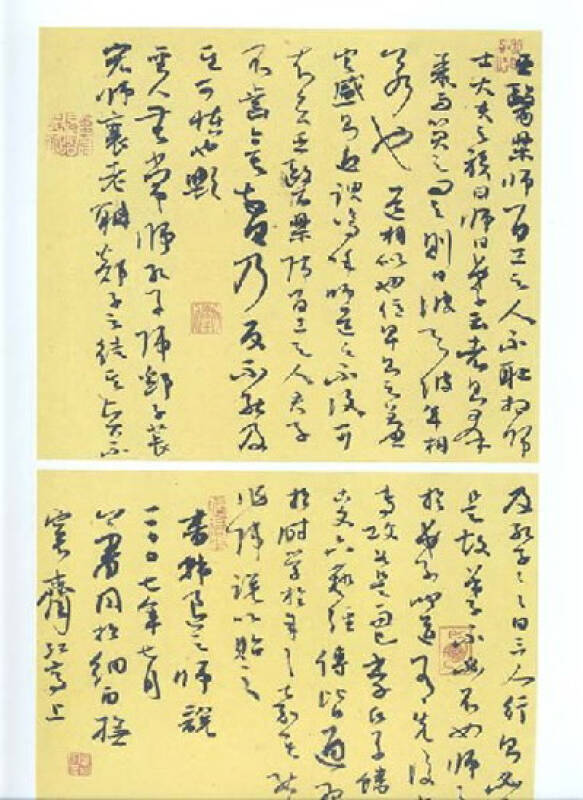 巫醫樂師百工之人不恥相師
士大夫之族曰師曰弟子云者則羣
聚而笑之問之則曰彼與彼年相
若也道相似也位卑則足羞
官盛則近諛嗚呼師道之不復可
知矣巫醫樂師百工之人君子
不齒今其智乃反不能及
其可怪也歟
聖人無常師孔子師郯子萇
弘師襄老聃郯子之徒其賢不
及孔子孔子曰三人行則必
是故弟子不必不如師
於弟子聞道有先後
專攻如是而已李氏子蟠
古文六藝經傳皆通習
於時學於余余嘉其能
作師說以貽之
書韓愈之師說
二〇〇七年七月